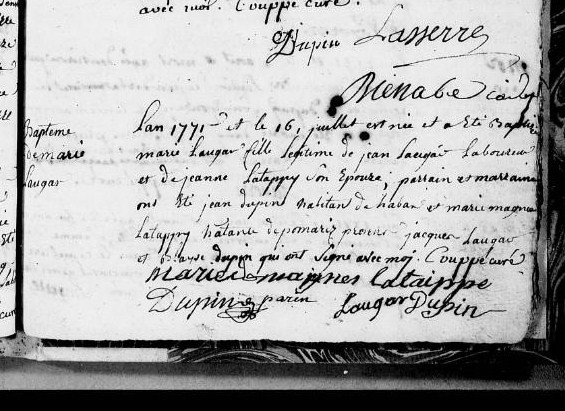 avec moi. Couppé curé.
Dupin Lasserre
Menabe
Bapteme
de marie
Laugar
Lan 1771 et le 16 juillet est née et a Eté Baptisée
marie Laugar fille legitime de jean Laugar Laboureur
et de jeanne Latappy son Epouze, parrain et marraine
ont Eté jean dupin natif de habas et marie magne
Latappy natale de pomarez presens jacques Laugar
et Blayse dupin qui ont signé avec moi. Couppé curé
Marie magnes Lataippe
Dupin parin Laugar Dupin